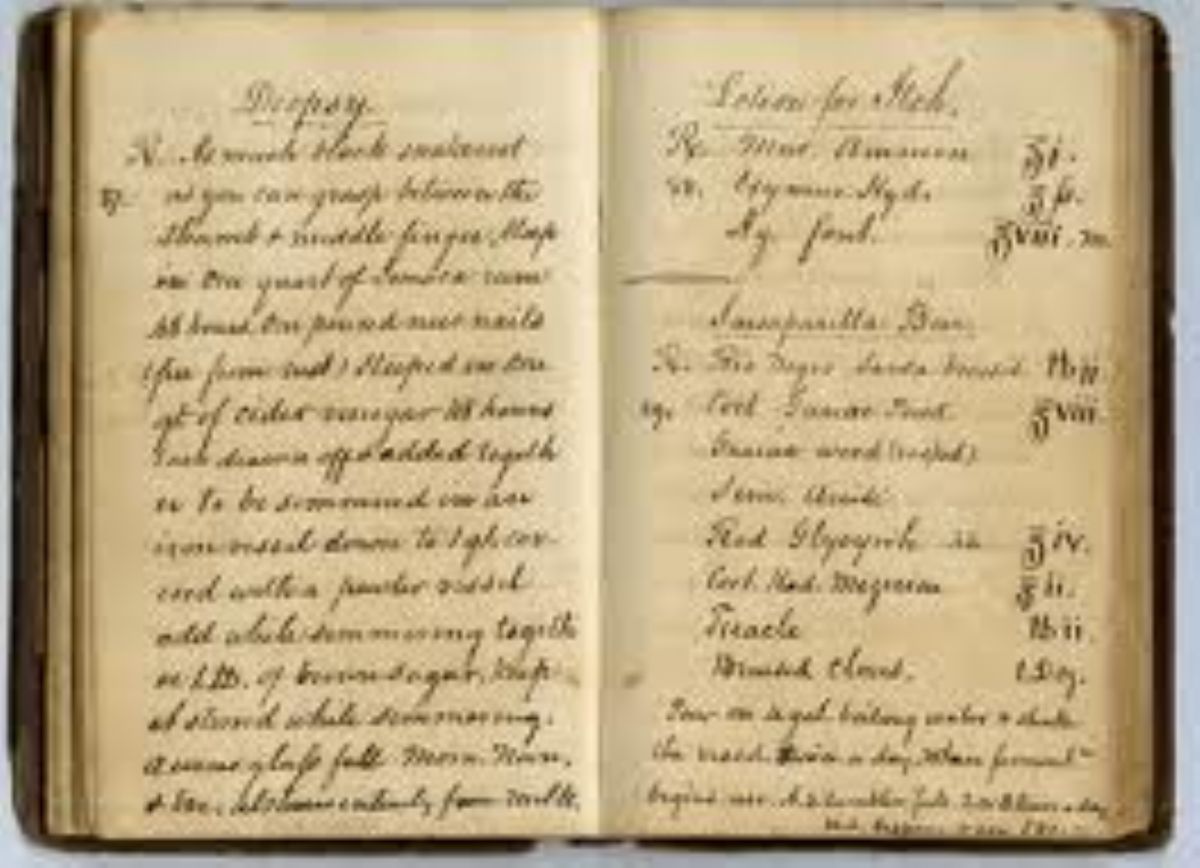 Dropsy.
Rx. As much black snakeroot
87. as you can grasp between the
thumb + middle finger, steep
in one quart of Jamaca rum
48 hours One pound new nails
(free from rust) steeped in one
qt of cider vinegar 48 hours
each drawn off + added togeth
er to be simmered in an
iron vessel down to 1 qt. cov-
ered with a pewter vessel
add while simmering togeth
er 1 lb. of brown sugar. Keep
it stired while simmering.
A wine glass full Morn. Noon,
+ Eve. abstain entirely from milk.
Lotion for Itch.
Rx. Mur. Ammon ℥j.
Hyd. ʒ
Aq. font. ℥viii. m.
Sarsaparilla Beer.
Rx. Rio Negro Sarsa bruised lbij
Cort. ℥viii
Guaiac wood (rasped)
Sem. Anisi
Rad Glycyrrh aa ℥iv.
Cort. Rad. Mezereon ℥ii.
Treacle lb ii.
Bruised Cloves. 1 Doz.
Pour on boiling water + shake
the vessel twice a day. When ferment
begins